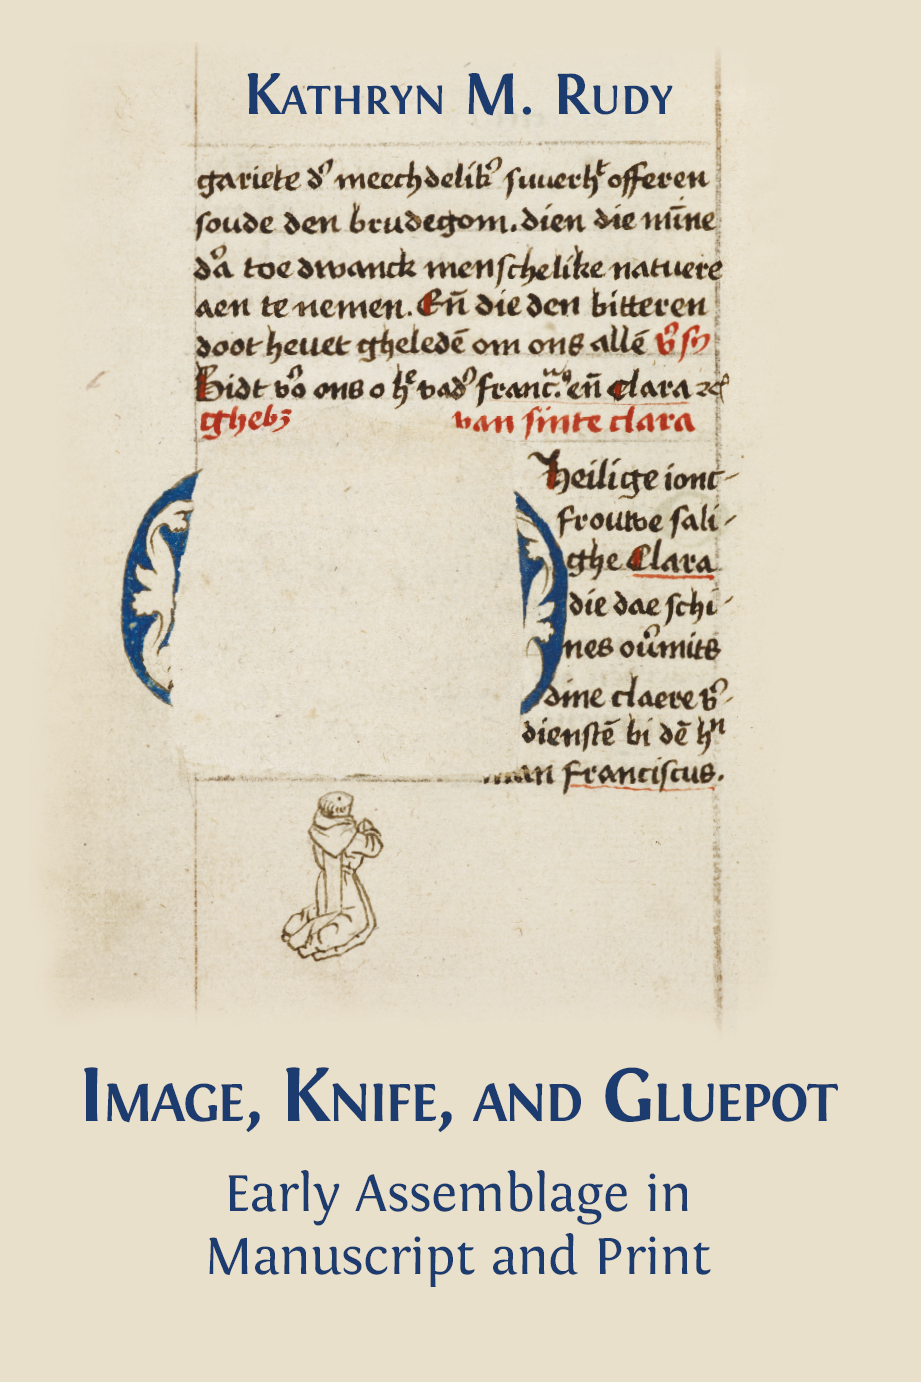 KATHRYN M. RUDY
gariete dʼ meechdelikʼ suuerhᵗ offeren
soude den brudegom. dien die mīne
dʼa toe dwanck menschelike natuere
aen te nemen. Eñ die den bitteren
doot heuet gheledē om ons allē
Bidt voʼ ons o hᵉ vadʼ eñ Clara
ghebʒ van sinte clara
heilige ionc-
frouwe sali-
ghe Clara
die dae schi-
nes ouʼmits
dine claere vʼ-
dienstē bi dē hⁿ
franciscus.
IMAGE, KNIFE, AND GLUEPOT
Early Assemblage in
Manuscript and Print